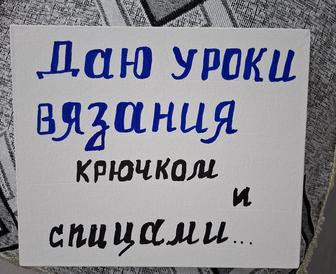 Даю уроки
вязания
крючком
и
спицами...